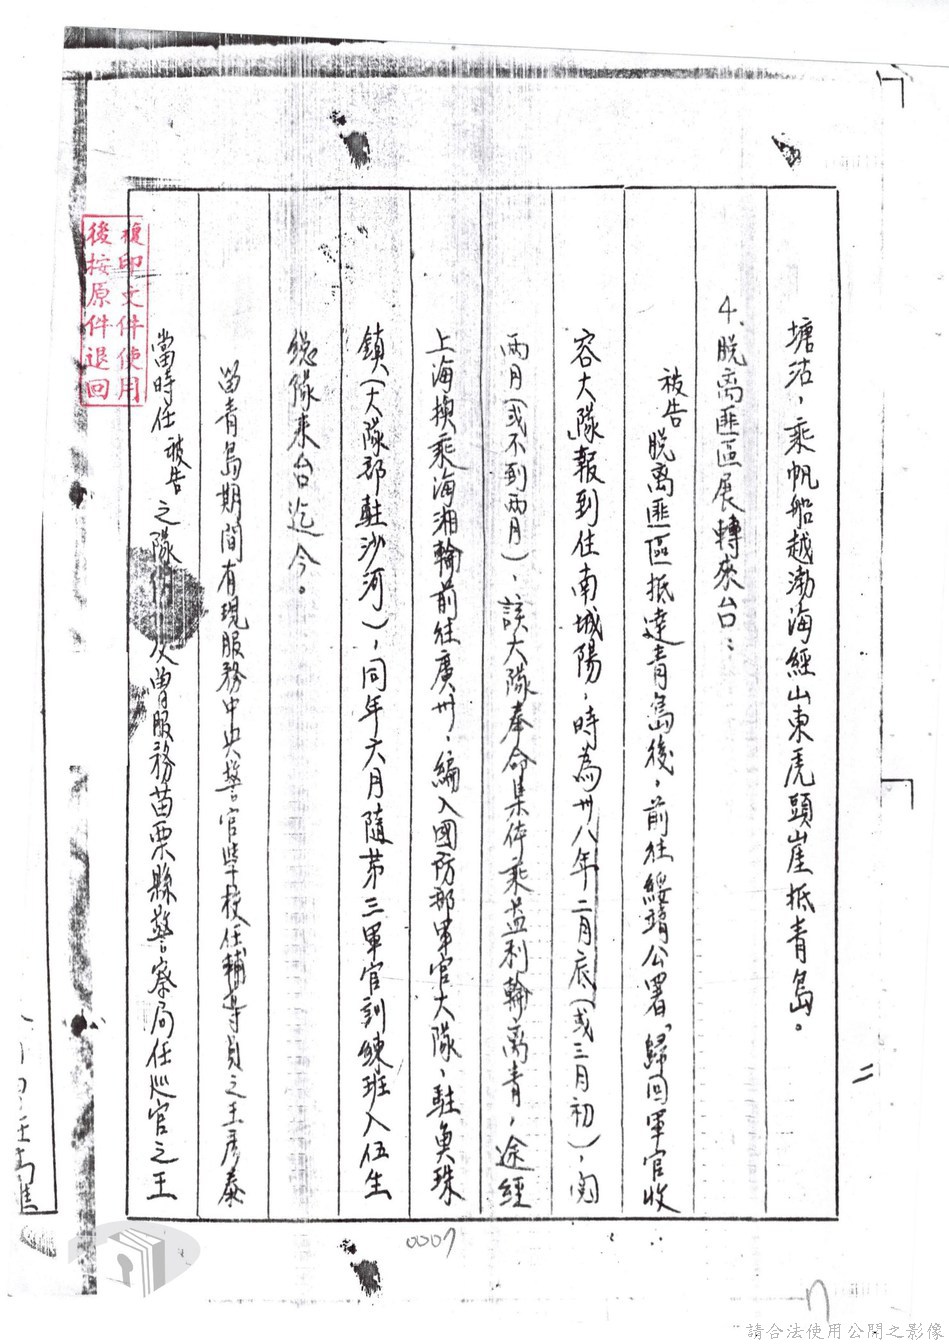 塘沽，乘帆船越渤海經山東虎頭崖抵青島。
4. 脫离匪區展轉來台：
被告脫离匪區抵達青島後，前往綏靖公署「歸回軍官收
容大隊」報到住南城陽，時為卅八年二月底（或三月初），閱
兩月（或不到兩月），該大隊奉命集体乘益利輪离青，途經
上海換乘海湘輪前往廣州，編入國防部軍官大隊，駐魚珠
鎮（大隊部駐沙河），同年六月隨第三軍官訓練班入伍生
總隊來台迄今。
留青島期間有現服務中央警官學校任輔導員之王彥泰
當時任被告之隊 及曾服務苗栗縣警察局任巡官之王
二
複印文件使用
後按原件退回
0007
7
請合法使用公開之影像